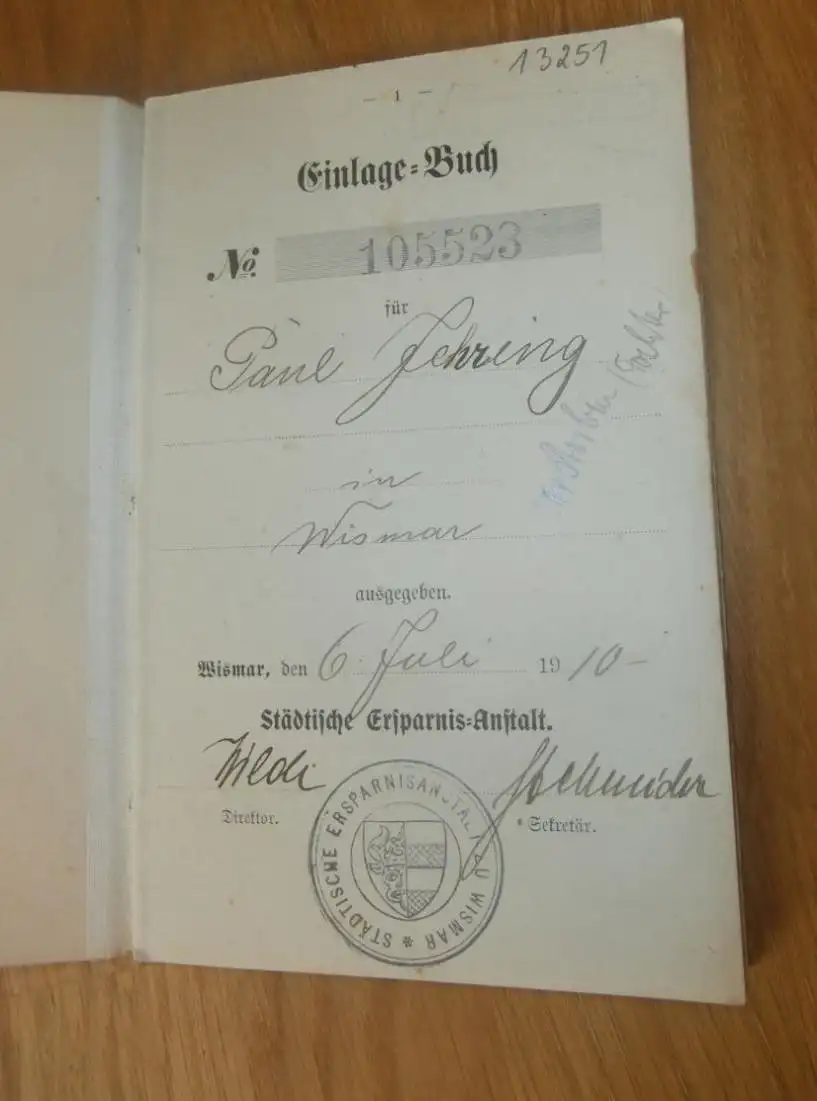 13251
— 1 —
Einlage-Buch
No. 105523
für
Paul Jehring
in
Wismar
ausgegeben.
Wismar, den 6. Juli 1910-
Städtische Ersparnis-Anstalt.
Direktor.
Sekretär.
STÄDTISCHE ERSPARNISANSTALT ZU WISMAR *